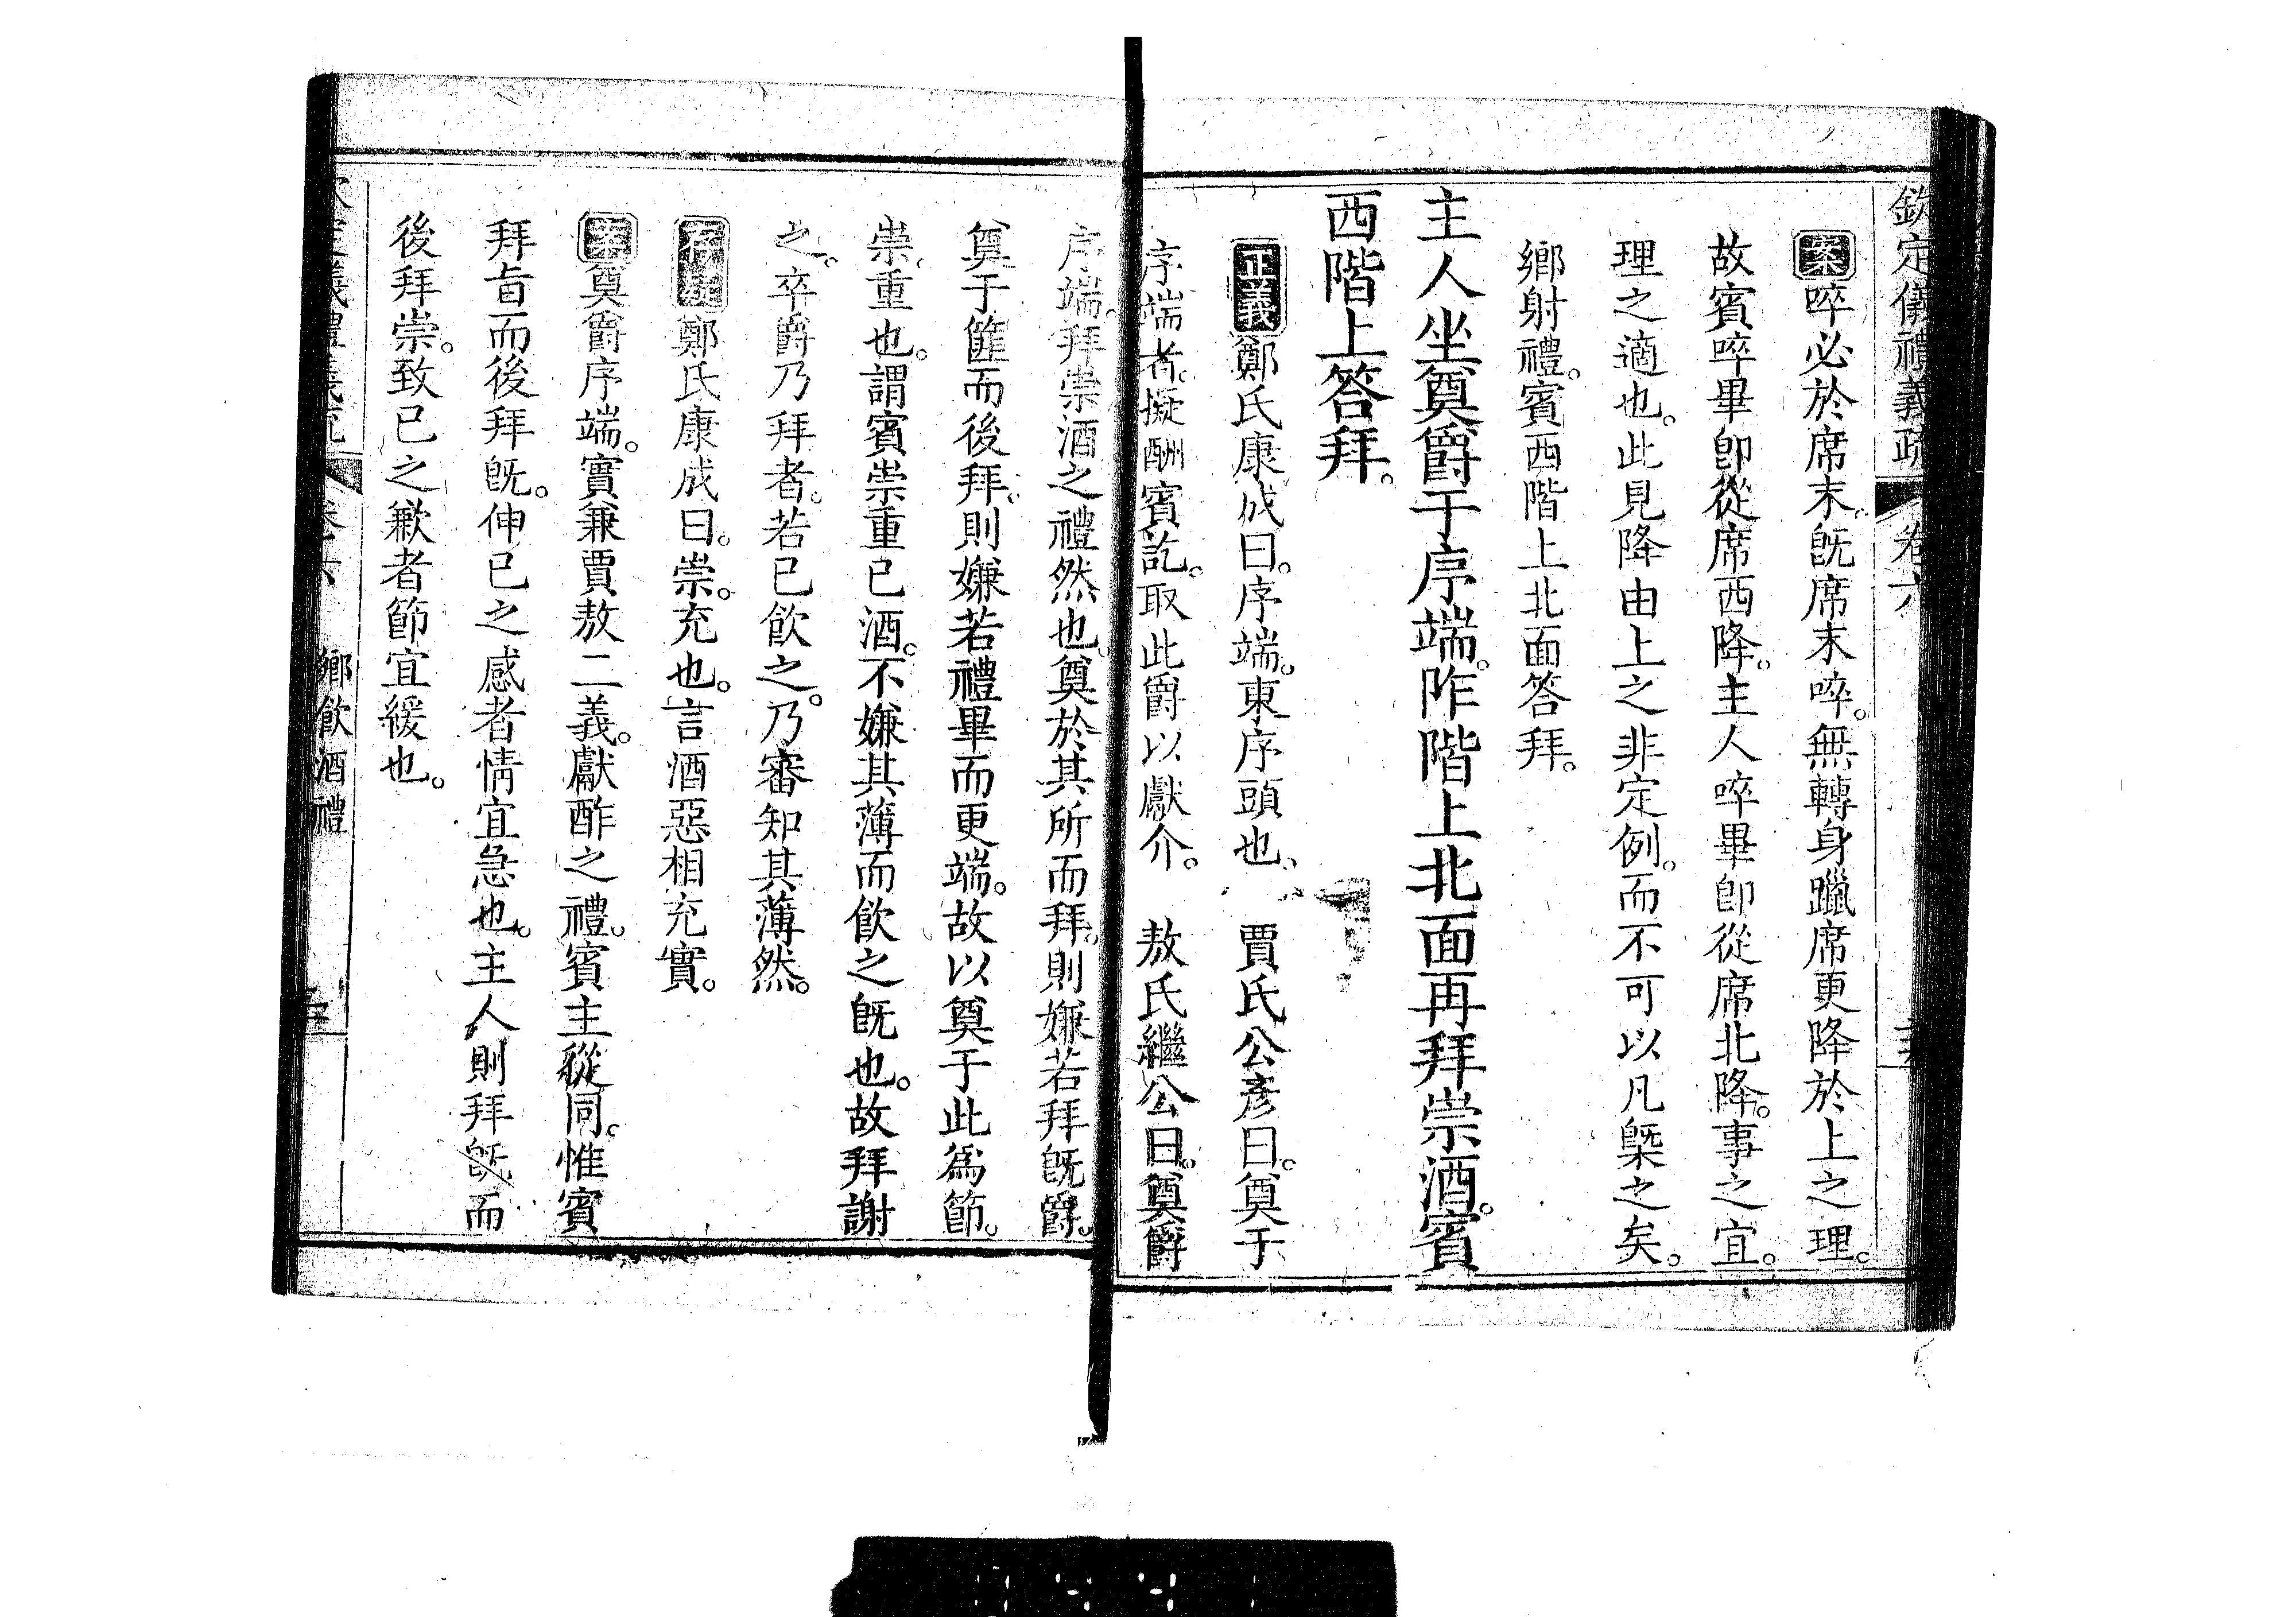 欽定儀禮義疏 卷六
案啐必於席末。既席末啐。無轉身躐席更降於上之理。
故賓啐畢卽從席西降。主人啐畢卽從席北降。事之宜。
理之適也。此見降由上之非定例。而不可以凡槩之矣。
鄉射禮。賓西階上北面答拜。
主人坐奠爵于序端。阼階上北面再拜崇酒。賓
西階上答拜。
正義鄭氏康成曰。序端。東序頭也、 賈氏公彥曰。奠于
序端者。擬酬賓訖。取此爵以獻介。 敖氏繼公曰。奠爵
序端。拜崇酒之禮然也。奠於其所而拜。則嫌若拜旣爵。
奠于篚而後拜。則嫌若禮畢而更端。故以奠于此爲節。
崇。重也。謂賓崇重己酒。不嫌其薄而飮之旣也。故拜謝
之。卒爵乃拜者。若已飮之。乃審知其薄然。
存疑鄭氏康成曰。崇。充也。言酒惡相充實。
案奠爵序端。實兼賈敖二義。獻酢之禮。賓主縱同。惟賓
拜旨而後拜旣。伸已之感者情宜急也。主人則拜旣而
後拜崇。致已之歉者節宜緩也。
欽定義禮義疏 卷六 鄉飮酒禮